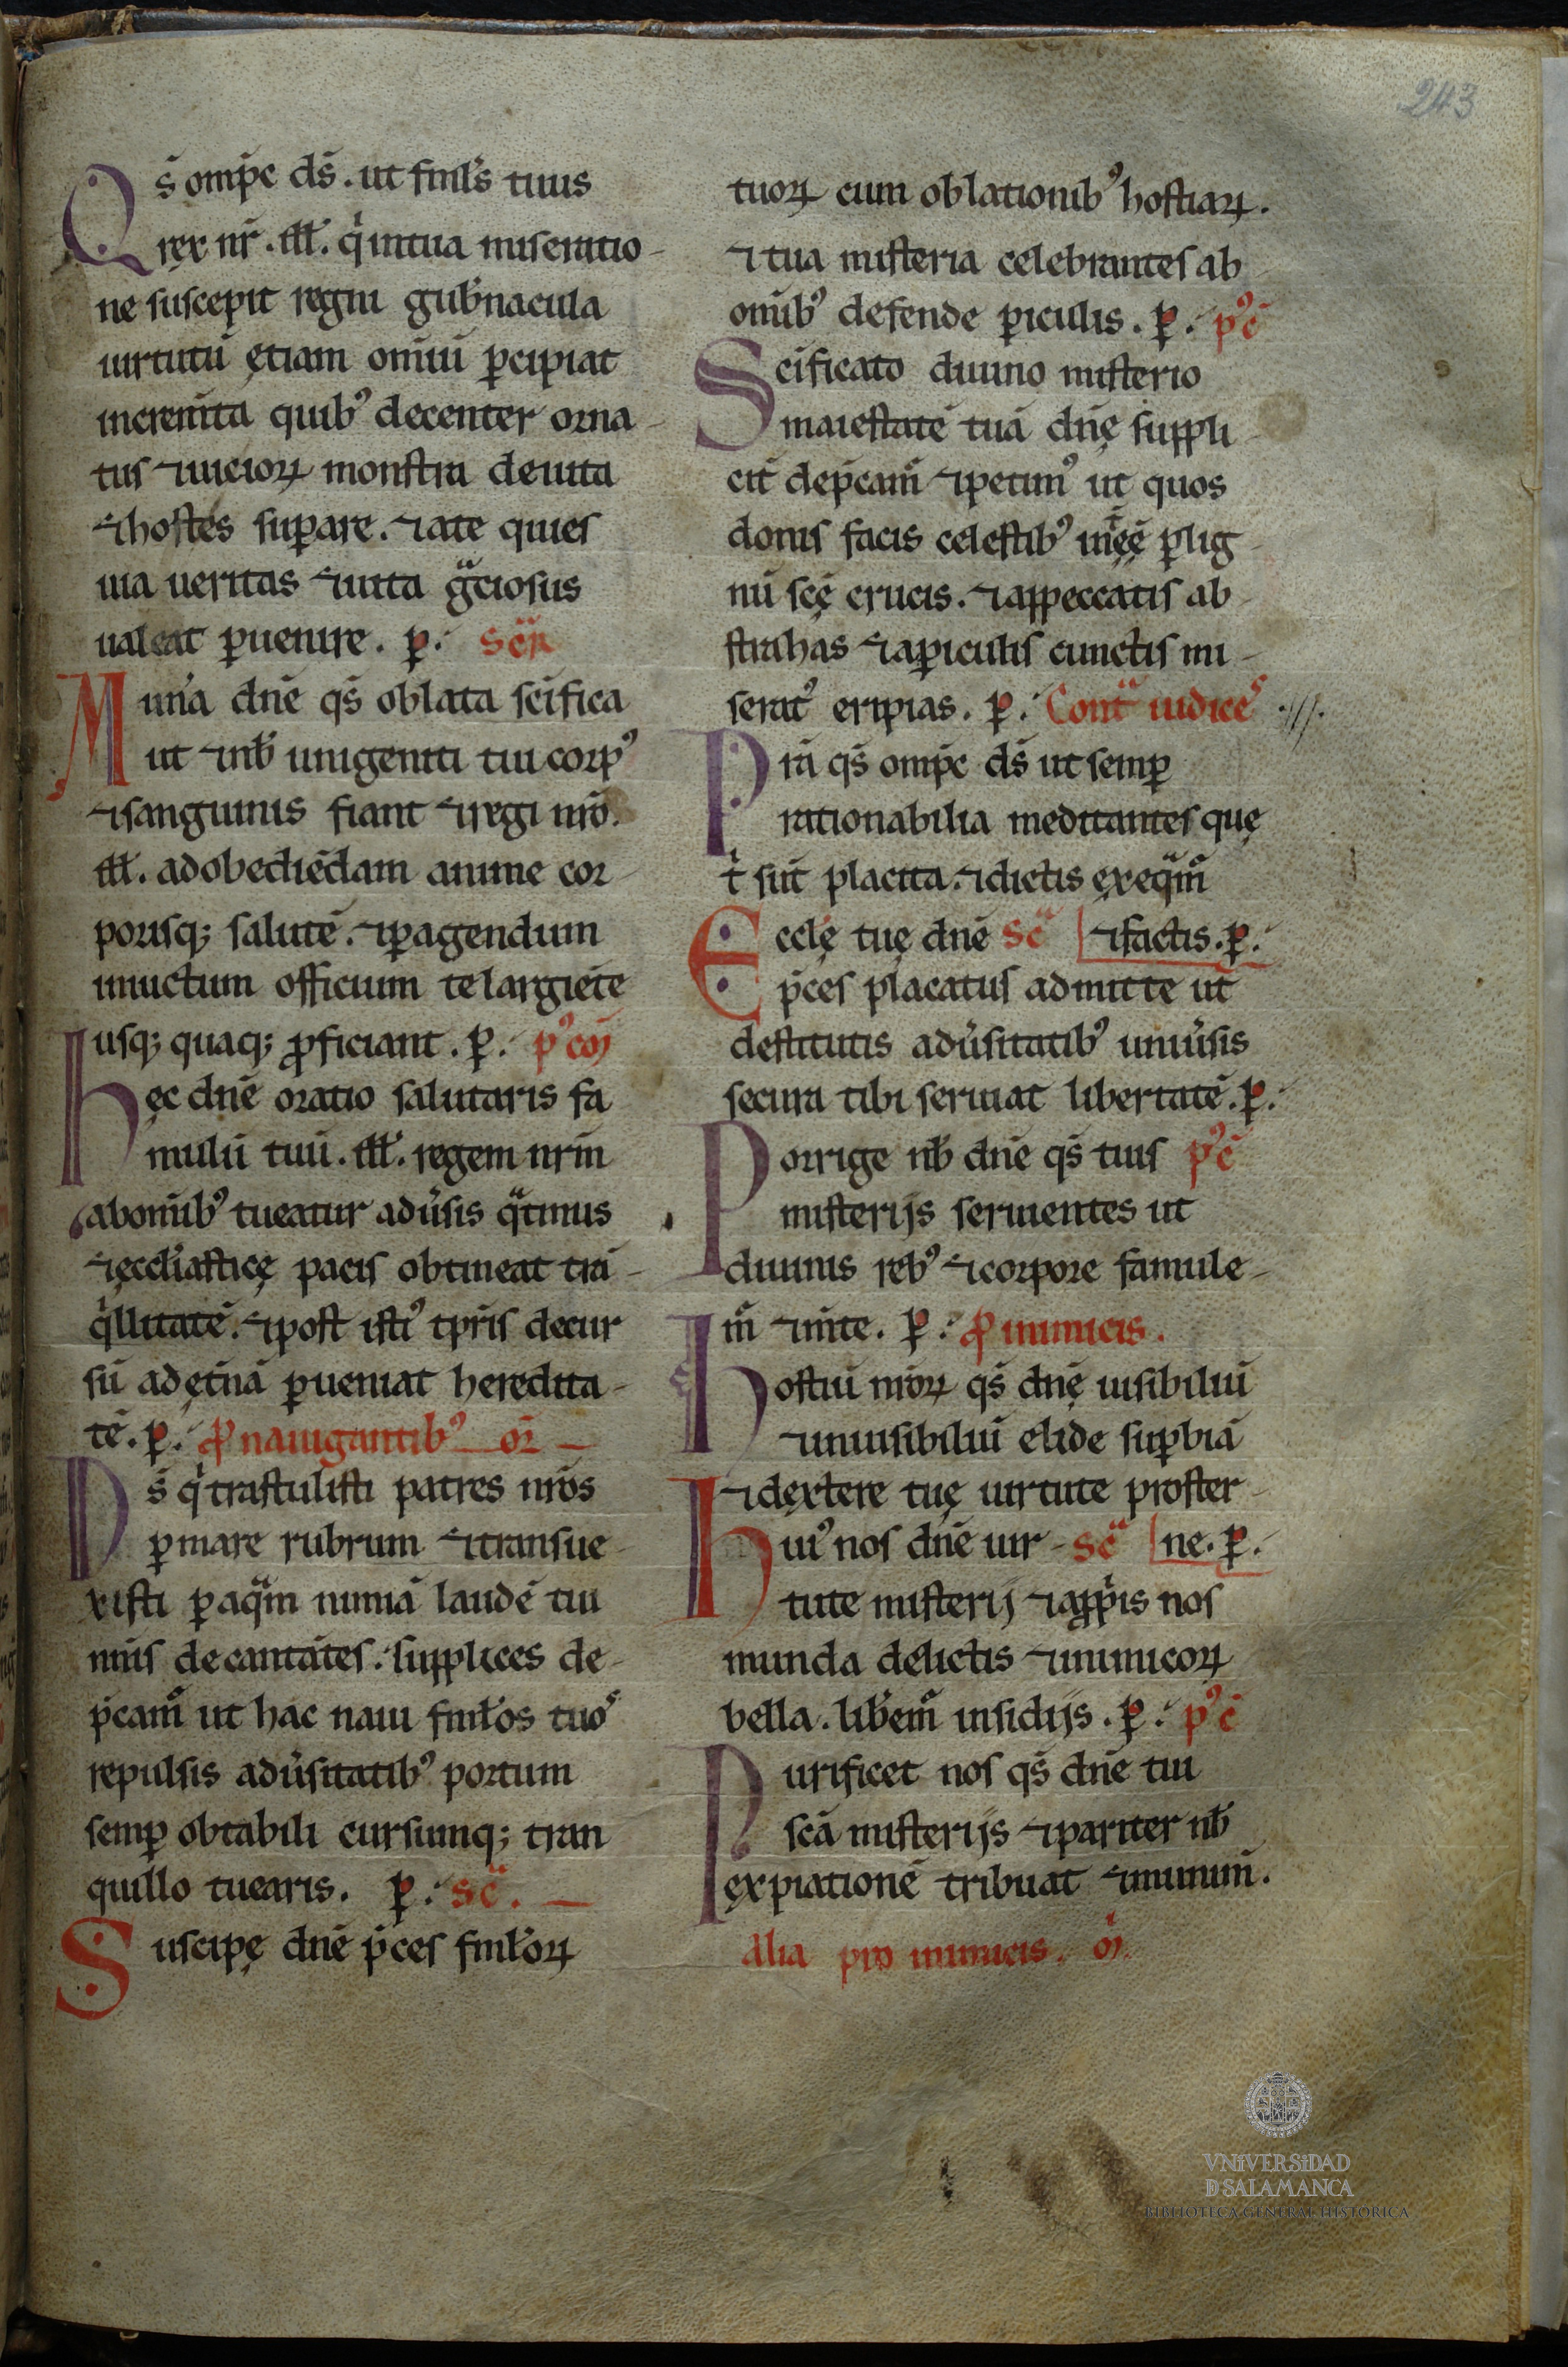 243
Qs̄ omp̄c ds̄. ut fml̄s tuus
rex nr̄. Ill̄. qͥ intua miseratio-
ne suscepit regni gub̄nacula
uirtutū ętiam om̄iū ꝑcipiat
increm̄ta quibꝰ decenter orna-
tus ⁊uicioꝝ monstra deuita
⁊hostes suꝑare. ⁊ate qui es
uia ueritas ⁊uita gͣciosus
ualeat ꝑuenire. ꝑ. Secͣr̄
Mun̄a dn̄e qs̄ oblata sc̄ifica
ut ⁊nb̄ unigeniti tui corpꝰ
⁊sanguinis fiant ⁊regi nr̄o.
Ill̄. adobediēdam anime cor-
porisq; salutē. ⁊ꝑagendum
iniuctum officium te largiēte
usq; quaq; ꝓficiant. ꝑ. pꝰcōm
Hęc dn̄e oratio salutaris fa
mulū tuū. Ill̄. regem nr̄m
abom̄ibꝰ tueatur adūsis qͣtinus
⁊ęccl̄iasticę pacis obtineat trā-
qͥllitatē. ⁊post istiꝰ tp̄ris decur
sū adęt̄nā ꝑueniat heredita-
tē. ꝑ. ꝓ nauigantibꝰ or̄
Ds̄ qͥ trastulisti patres nr̄os
ꝑmare rubrum ⁊transue-
xisti ꝑ aqͣm nimiā laudē tui
nīis decantātes. supplices de-
p̄camᷣ ut hac naui fml̄os tuoˢ
repulsis adūsitatibꝰ portum
semꝑ obtabili cursumq; tran
quillo tuearis. ꝑ. secͣ.
Suscipę dn̄e p̄ces fml̄oꝝ
tuoꝝ cum oblationibꝰ hostiaꝝ.
⁊tua misteria celebrantes ab
om̄ibꝰ defende ꝑiculis. ꝑ. pꝰc̄
Sc̄ificato diuino misterio
maiestatē tuā dn̄ę suppli-
cit̄ dep̄camᷣ ⁊petimꝰ ut quos
donis facis celestibꝰ int̄ēę ꝑlig-
nū sc̄ę crucis. ⁊appeccatis ab-
strahas ⁊aꝑiculis cunctis mi-
seratꝰ eripias. ꝑ. Contͣ iudiceˢ
Pr̄a qs̄ omp̄c ds̄ ut semꝑ
rationabilia meditantes quę
tͥ sūt placita. ⁊dictis ęxeqͣmᷣ
⁊factis. ꝑ.
Eccl̄ę tuę dn̄e Secͣ
p̄ces placatus admitte ut
destitutis adūsitatibꝰ uniūsis
secura tibi seruiat libertatē. ꝑ.
Porrige nb̄ dn̄e qs̄ tuis pꝰc̄
misterijs seruientes ut
diuinis rebꝰ ⁊corpore famule-
mᷣ ⁊m̄te. ꝑ. ꝓ inimicis.
Hostiū nr̄oꝝ qs̄ dn̄ę uisibiliū
⁊inuisibiliū elide suꝑbiā
⁊dęxtere tuę uirtute proster-
ne. ꝑ.
Huiꝰ nos dn̄e uir- Secͣ
tute misterij ⁊appͥis nos
munda delictis ⁊inimicoꝝ
bella. lib̄emᷣ insidijs. ꝑ. pꝰc̄
Purificet nos qs̄ dn̄e tui
sc̄ā misterijs ⁊pariter nb̄
ęxpiationē tribuat ⁊munim̄.
Alia pro inimicis. or̄.
VNiVERSiDAD
D SALAMANCA
BIBLIOTECA GENERAL HISTÓRICA